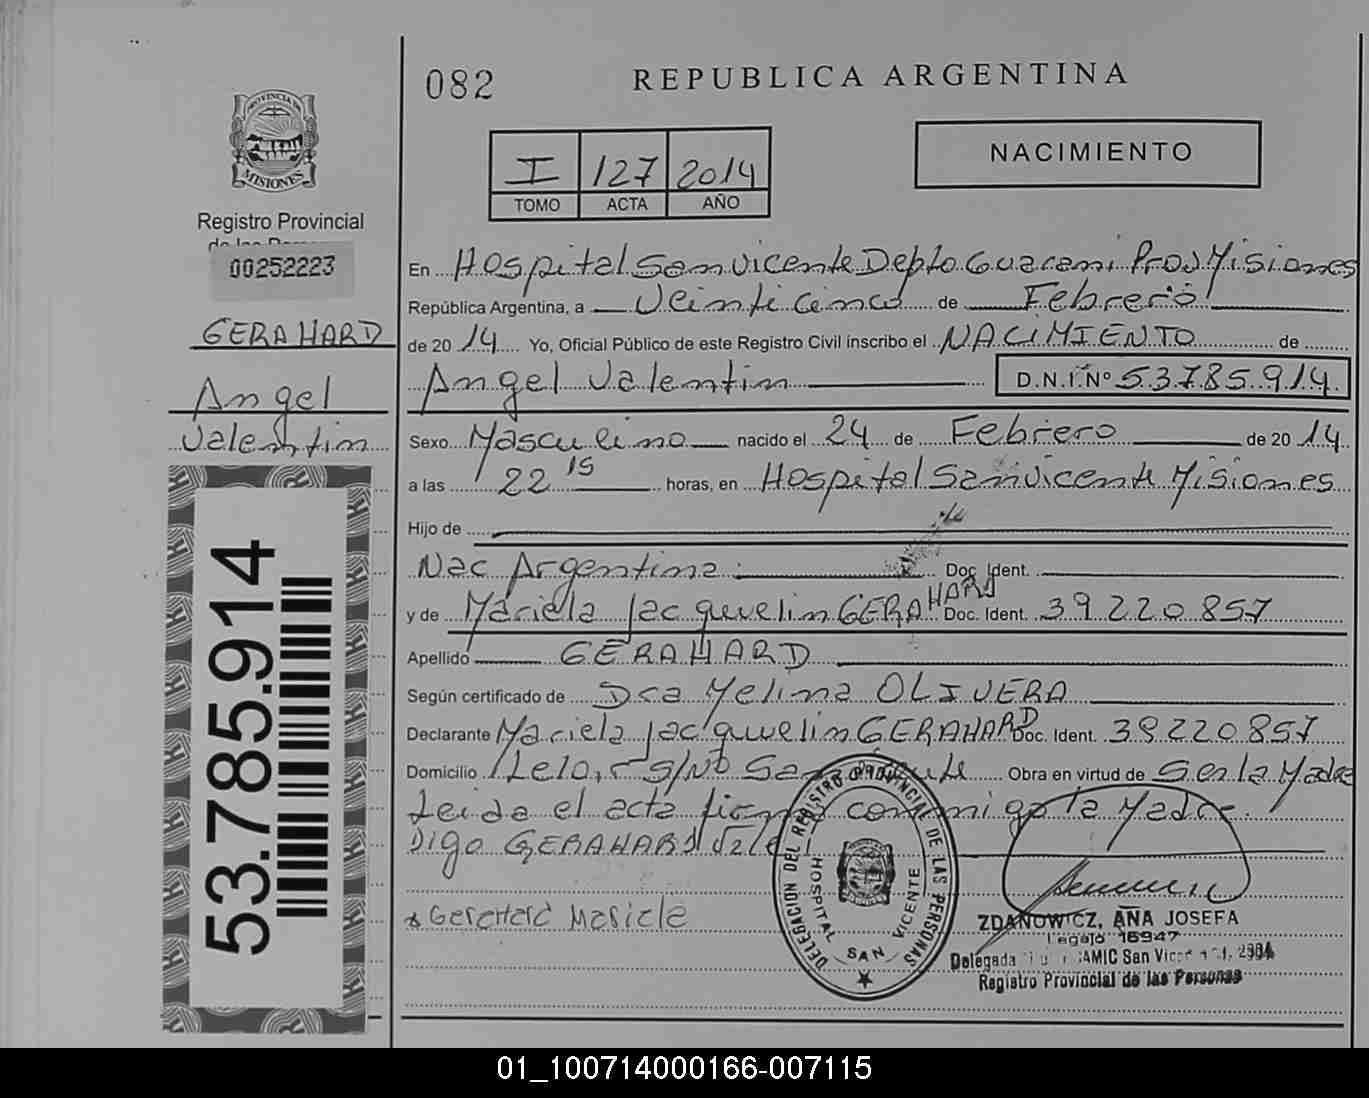 082
REPUBLICA ARGENTINA
PROVINCIA DE
MISIONES
Registro Provincial
de las
00252223
I 127 2014
TOMO ACTA AÑO
NACIMIENTO
GERAHARD
Angel
Valentin
53.785.914
En Hospital San Vicente Depto Guarani Prov Misiones
República Argentina, a Veinticinco de Febrero
de 20 14 Yo, Oficial Público de este Registro Civil inscribo el NACIMIENTO de
Angel Valentin D.N.I. Nº 53.785.914
Sexo Masculino nacido el 24 de Febrero de 20 14
a las 22 15 horas, en Hospital San Vicente Misiones
Hijo de
Nac Argentina Doc. Ident.
y de Mariela Jacquvelin GERAHARD Doc. Ident. 39220857
Apellido GERAHARD
Según certificado de Dra Melina OLIVERA
Declarante Mariela Jacquvelin GERAHARD Doc. Ident. 39220857
Domicilio S/Nº San Obra en virtud de Ser la Madre
Leida el acta firma conmigo la Madre.
Digo GERAHARD Vale
Gerahard Mariela
DELEGACION DEL REGISTRO PROVINCIAL DE LAS PERSONAS
HOSPITAL SAN VICENTE
ZDANOWICZ, ANA JOSEFA
Legajo 16947
Delegada SAMIC San Vicente
Registro Provincial de las Personas
01_100714000166-007115